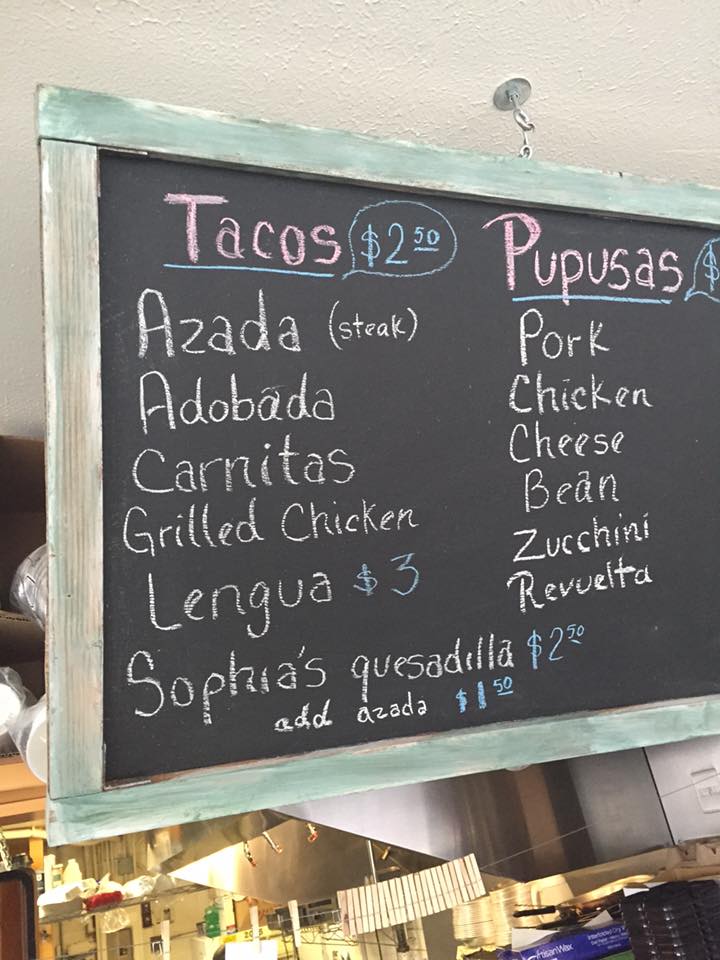 Tacos $2.50
Azada (steak)
Adobada
Carnitas
Grilled Chicken
Lengua $3
Sophia's quesadilla $2.50
add azada $1.50
Pupusas $
Pork
Chicken
Cheese
Bean
Zucchini
Revuelta
ArtisanWax